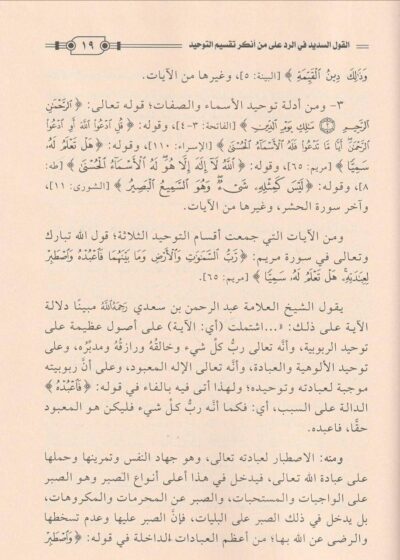 القول السديد في الرد على من أنكر تقسيم التوحيد ١٩
وَذَٰلِكَ دِينُ ٱلْقَيِّمَةِ ﴾ [البينة: ٥]، وغيرها من الآيات.
٣- ومن أدلة توحيد الأسماء والصفات؛ قوله تعالى: ﴿ ٱلرَّحْمَٰنِ
ٱلرَّحِيمِ ۝ مَٰلِكِ يَوْمِ ٱلدِّينِ ﴾ [الفاتحة: ٣-٤]، وقوله: ﴿ قُلِ ٱدْعُوا۟ ٱللَّهَ أَوِ ٱدْعُوا۟
ٱلرَّحْمَٰنَ أَيًّا مَّا تَدْعُوا۟ فَلَهُ ٱلْأَسْمَآءُ ٱلْحُسْنَىٰ ﴾ [الإسراء: ١١٠]، وقوله: ﴿ هَلْ تَعْلَمُ لَهُۥ
سَمِيًّا ﴾ [مريم: ٦٥]، وقوله: ﴿ ٱللَّهُ لَآ إِلَٰهَ إِلَّا هُوَ لَهُ ٱلْأَسْمَآءُ ٱلْحُسْنَىٰ ﴾ [طه:
٨]، وقوله: ﴿ لَيْسَ كَمِثْلِهِۦ شَىْءٌ وَهُوَ ٱلسَّمِيعُ ٱلْبَصِيرُ ﴾ [الشورى: ١١]،
وآخر سورة الحشر، وغيرها من الآيات.
ومن الآيات التي جمعت أقسام التوحيد الثلاثة؛ قول الله تبارك
وتعالى في سورة مريم: ﴿ رَّبُّ ٱلسَّمَٰوَٰتِ وَٱلْأَرْضِ وَمَا بَيْنَهُمَا فَٱعْبُدْهُ وَٱصْطَبِرْ
لِعِبَٰدَتِهِۦ هَلْ تَعْلَمُ لَهُۥ سَمِيًّا ﴾ [مريم: ٦٥].
يقول الشيخ العلامة عبد الرحمن بن سعدي رَحِمَهُ اللَّهُ مبينًا دلالة
الآية على ذلك: «...اشتملت (أي: الآية) على أصول عظيمة على
توحيد الربوبية، وأنَّه تعالى ربُّ كلِّ شيء وخالقُهُ ورازقُهُ ومدبِّرُه، وعلى
توحيد الألوهية والعبادة، وأنَّه تعالى الإله المعبود، وعلى أنَّ ربوبيته
موجبة لعبادته وتوحيده؛ ولهذا أتى فيه بالفاء في قوله: ﴿ فَٱعْبُدْهُ ﴾
الدالة على السبب، أي: فكما أنَّه ربُّ كلِّ شيء فليكن هو المعبود
حقًّا، فاعبده.
ومنه: الاصطبار لعبادته تعالى، وهو جهاد النفس وتمرينها وحملها
على عبادة الله تعالى، فيدخل في هذا أعلى أنواع الصبر وهو الصبر
على الواجبات والمستحبات، والصبر عن المحرمات والمكروهات،
بل يدخل في ذلك الصبر على البليات، فإنَّ الصبر عليها وعدم تسخطها
والرضى عن الله بها؛ من أعظم العبادات الداخلة في قوله: ﴿ وَٱصْطَبِرْ